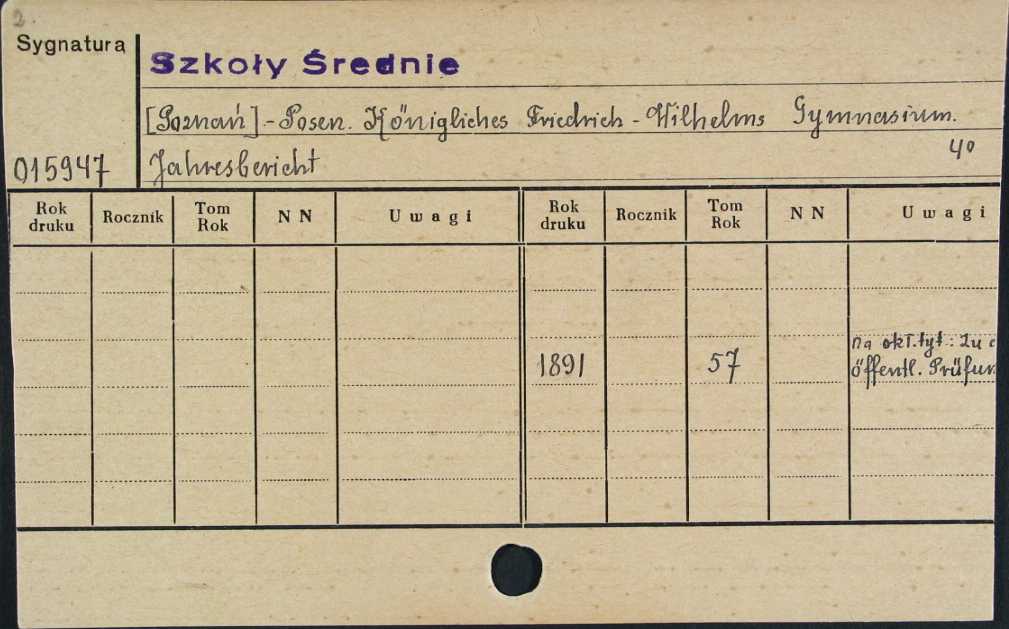 2.
Sygnatura
Szkoły Średnie
[Poznań] - Posen. Königliches Friedrich - Wilhelms Gymnasium.
4°
015947
Jahresbericht
Rok druku Rocznik Tom Rok N N Uwagi Rok druku Rocznik Tom Rok N N Uwagi
na okł. tyt.: Zu d
1891 57 öffentl. Prüfun